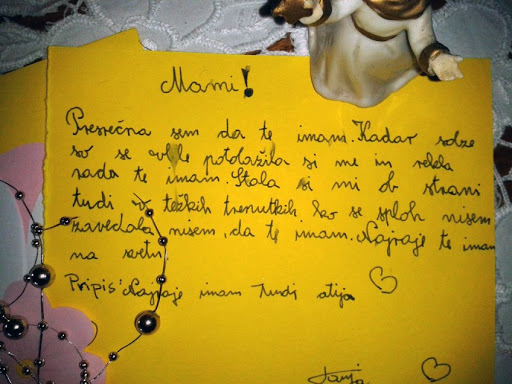 Mami!
Presrečna sem da te imam. Kadar solze
so se ulile potolažila si me in rekla
rada te imam. Stala si mi ob strani
tudi v težkih trenutkih, ko se sploh nisem
zavedala nisem, da te imam. Najraje te imam
na svetu.
Pripis: Najraje imam tudi atija
Tanja